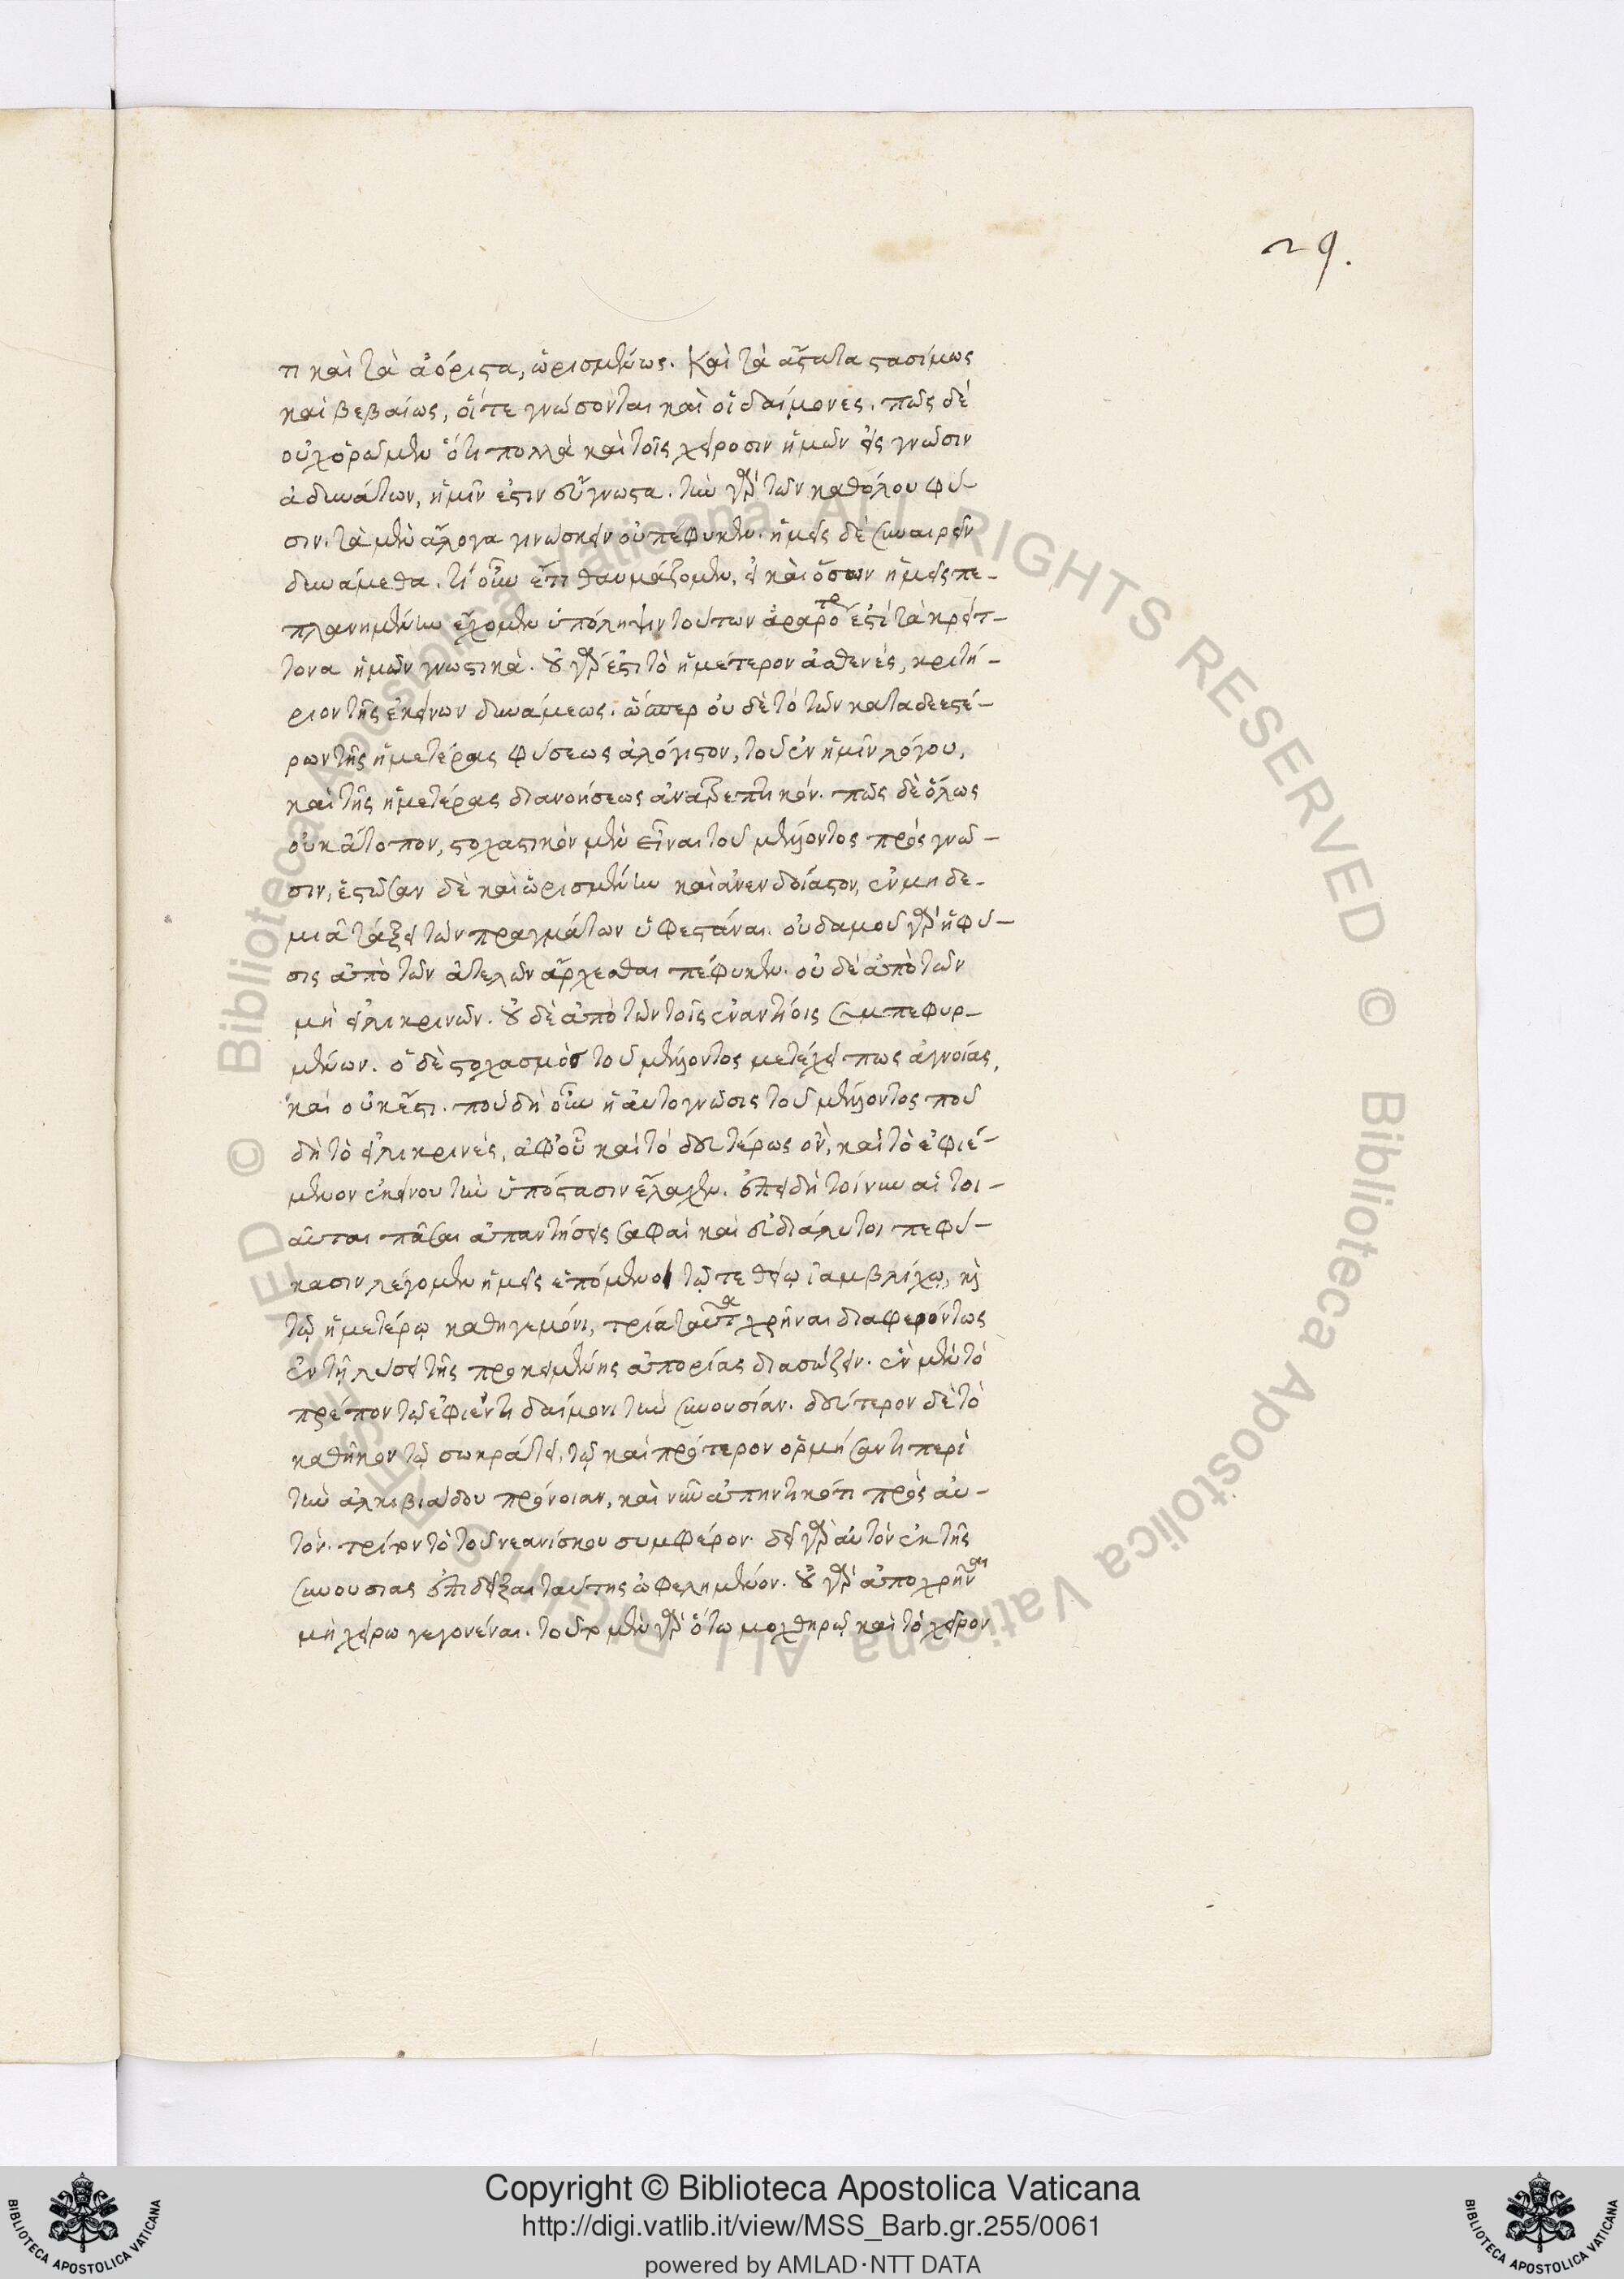 29.
τι καὶ τὰ ἀόριστα, ὡρισμένως. Καὶ τὰ ἄστατα στασίμως
καὶ βεβαίως, οἵ τε γνώσονται καὶ οἱ δαίμονες. πῶς δὲ
οὐχ ὁρῶμεν ὅτι πολλὰ καὶ τοῖς χείροσιν ἡμῶν εἰς γνῶσιν
ἀδυνάτων, ἡμῖν ἐστιν εὔγνωστα. τὴν γὰρ τῶν καθόλου φύ-
σιν. τὰ μὲν ἄλογα γινώσκειν οὐ πέφυκεν. ἡμεῖς δὲ συναιρεῖν
δυνάμεθα. τί οὖν ἔτι θαυμάζομεν, εἰ καὶ ὅσων ἡμεῖς πε-
πλανημένην ἔχομεν ὑπόληψιν τούτων ἀραρό ἐστὶ τὰ κρείτ-
τονα ἡμῶν γνωστικά. οὐ γάρ ἐστι τὸ ἡμέτερον ἀσθενὲς, κριτή-
ριον τῆς ἐκείνων δυνάμεως. ὥσπερ οὐδὲ τὸ τῶν καταδεεστέ-
ρων τῆς ἡμετέρας φύσεως ἀλόγιστον, τοῦ ἐν ἡμῖν λόγου,
καὶ τῆς ἡμετέρας διανοήσεως ἀνατρεπτικόν. πῶς δὲ ὅλως
οὐκ ἄτοπον, στοχαστικὸν μὲν εἶναι τοῦ μέλλοντος πρὸς γνῶ-
σιν, ἑστῶσαν δὲ καὶ ὡρισμένην καὶ ἀνενδοίαστον, ἐν μηδε-
μιᾷ τάξει τῶν πραγμάτων ὑφεστάναι. οὐδαμοῦ γὰρ ἡ φύ-
σις ἀπὸ τῶν ἀτελῶν ἄρχεσθαι πέφυκεν. οὐδὲ ἀπὸ τῶν
μὴ εἰλικρινῶν. οὐδὲ ἀπὸ τῶν τοῖς ἐναντίοις συμπεφυρ-
μένων. ὁ δὲ στοχασμὸς τοῦ μέλλοντος μετέχει πως ἀγνοίας,
καὶ οὐκ ἔστι. ποῦ δὴ οὖν ἡ αὐτογνῶσις τοῦ μέλλοντος ποῦ
δὴ τὸ εἰλικρινὲς, ἀφ' οὗ καὶ τὸ δευτέρως ὂν, καὶ τὸ ἐφιέ-
μενον ἐκείνου τὴν ὑπόστασιν ἔλαχεν. ἐπειδὴ τοίνυν αἱ τοι-
αῦται πᾶσαι ἀπαντήσεις σαφαὶ καὶ εὐδιάλυτοι πεφύ-
κασιν λέγομεν ἡμεῖς ἑπόμενοι τῷ τε θείῳ ἰαμβλίχῳ, καὶ
τῷ ἡμετέρῳ καθηγεμόνι, τρία ταῦτα χρῆναι διαφερόντως
ἐν τῇ λύσει τῆς προκειμένης ἀπορίας διασώζειν. ἓν μὲν τὸ
πρέπον τῷ ἐφιέντι δαίμονι τὴν συνουσίαν. δεύτερον δὲ τὸ
καθῆκον τῷ σωκράτει, τῷ καὶ πρότερον ὁρμήσαντι περὶ
τὴν ἀλκιβιάδου πρόνοιαν, καὶ νῦν ἀπηντικότι πρὸς αὐ-
τόν. τρίτον τὸ τοῦ νεανίσκου συμφέρον. δεῖ γὰρ αὐτὸν ἐκ τῆς
συνουσίας ἐπιδεῖξαι ταύτης ὠφελημένον. οὐ γὰρ ἀποχρῆναι
μὴ χείρω γεγονέναι. τοῦτο μὲν γὰρ ὅτῳ μοχθηρῷ καὶ τὸ χεῖρον
Copyright © Biblioteca Apostolica Vaticana
http://digi.vatlib.it/view/MSS_Barb.gr.255/0061
powered by AMLAD·NTT DATA
BIBLIOTECA APOSTOLICA VATICANA
BIBLIOTECA APOSTOLICA VATICANA
© Biblioteca Apostolica Vaticana ALL RIGHTS RESERVED © Biblioteca Apostolica Vaticana ALL RIGHTS RESERVED